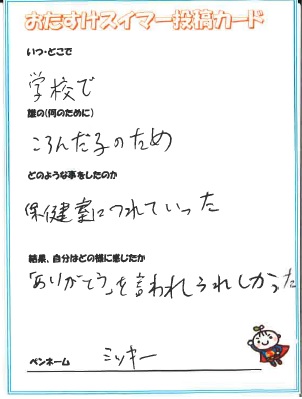 おたすけスイマー投稿カード
いつ・どこで
学校で
誰の(何のために)
ころんだ子のため
どのような事をしたのか
保健室につれていった
結果、自分はどの様に感じたか
「ありがとう」を言われうれしかった
ペンネーム ミッキー